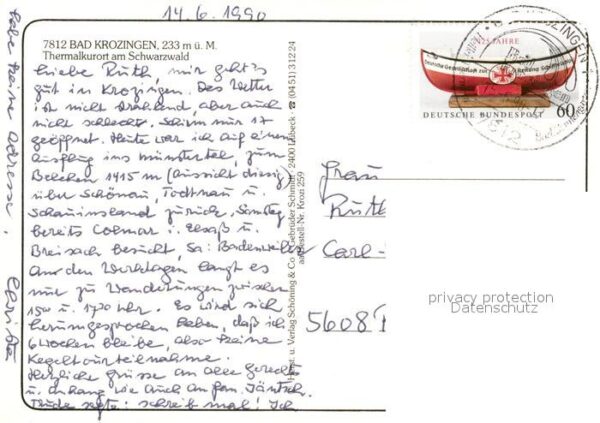 14.6.1990
7812 BAD KROZINGEN, 233 m ü. M.
Thermalkurort am Schwarzwald
Liebe Ruth, mir geht's
gut in Krozingen. Das Wetter
ist nicht strahlend, aber auch
nicht schlecht. Schirm nur 1x
geöffnet. Heute war ich auf einem
Ausflug ins Münstertal, zum
Belchen 1415 m (Aussicht diesig)
über Schönau, Todtnau u.
Schauinsland zurück. Samstag
bereits Colmar i. Elsaß u.
Breisach besucht, Sa: Badenweiler
An den Werktagen langt es
nur zu Wanderungen zwischen
1500 u. 1730 Uhr. Es wird sich
herumgesprochen haben, daß ich
6 Wochen bleibe, also keine
Kegeltourteilnahme.
Herzliche Grüsse an alle
u. Anhang wie auch an Fam.
sagte: schreib mal! Ich
habe keine Adresse.
Christa
Horst u. Verlag Schöning & Co + Gebrüder Schmidt · 2400 Lübeck · ☎ (04 51) 3 12 24
Bestell-Nr. Kron 259
125 JAHRE
Deutsche Gesellschaft zur Rettung Schiffbrüchiger
DEUTSCHE BUNDESPOST
60
7812
Frau
Ruth
Carl-
5608
privacy protection
Datenschutz